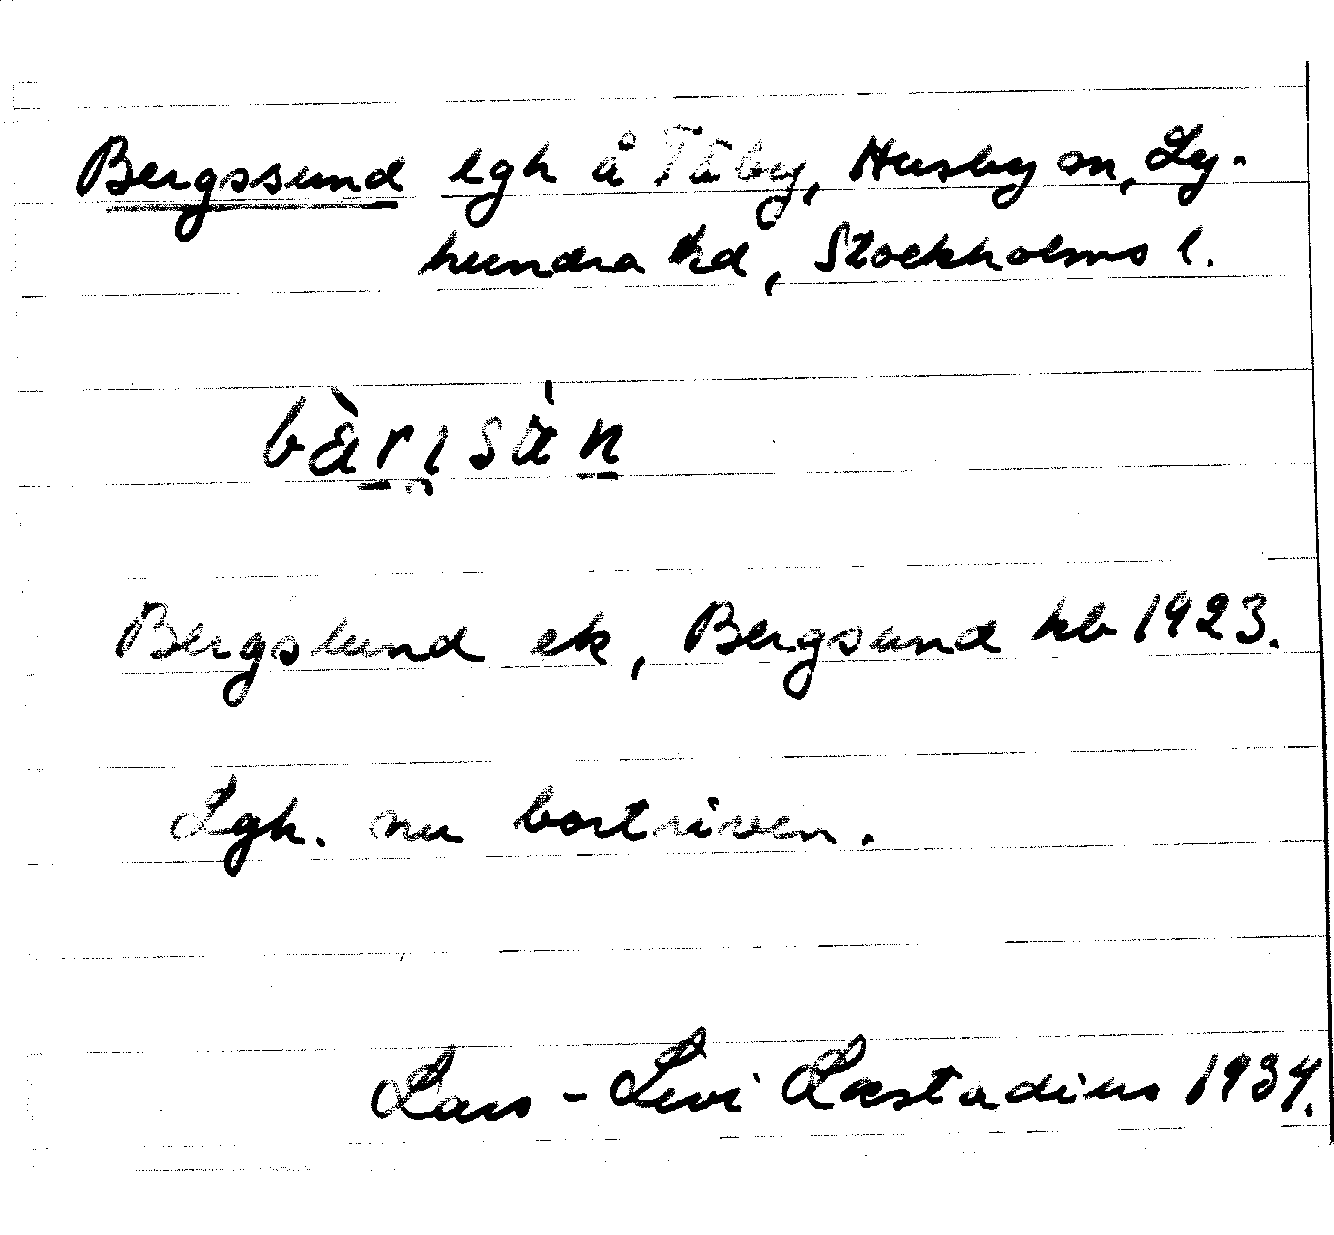 Bergssund lgh å Täby, Husby sn, Ly-
hundra hd, Stockholms l.
bàrısàn
Bergslund ek, Bergsund kb 1923.
Lgh. nu bortriven.
Lars-Levi Læstadius 1934.